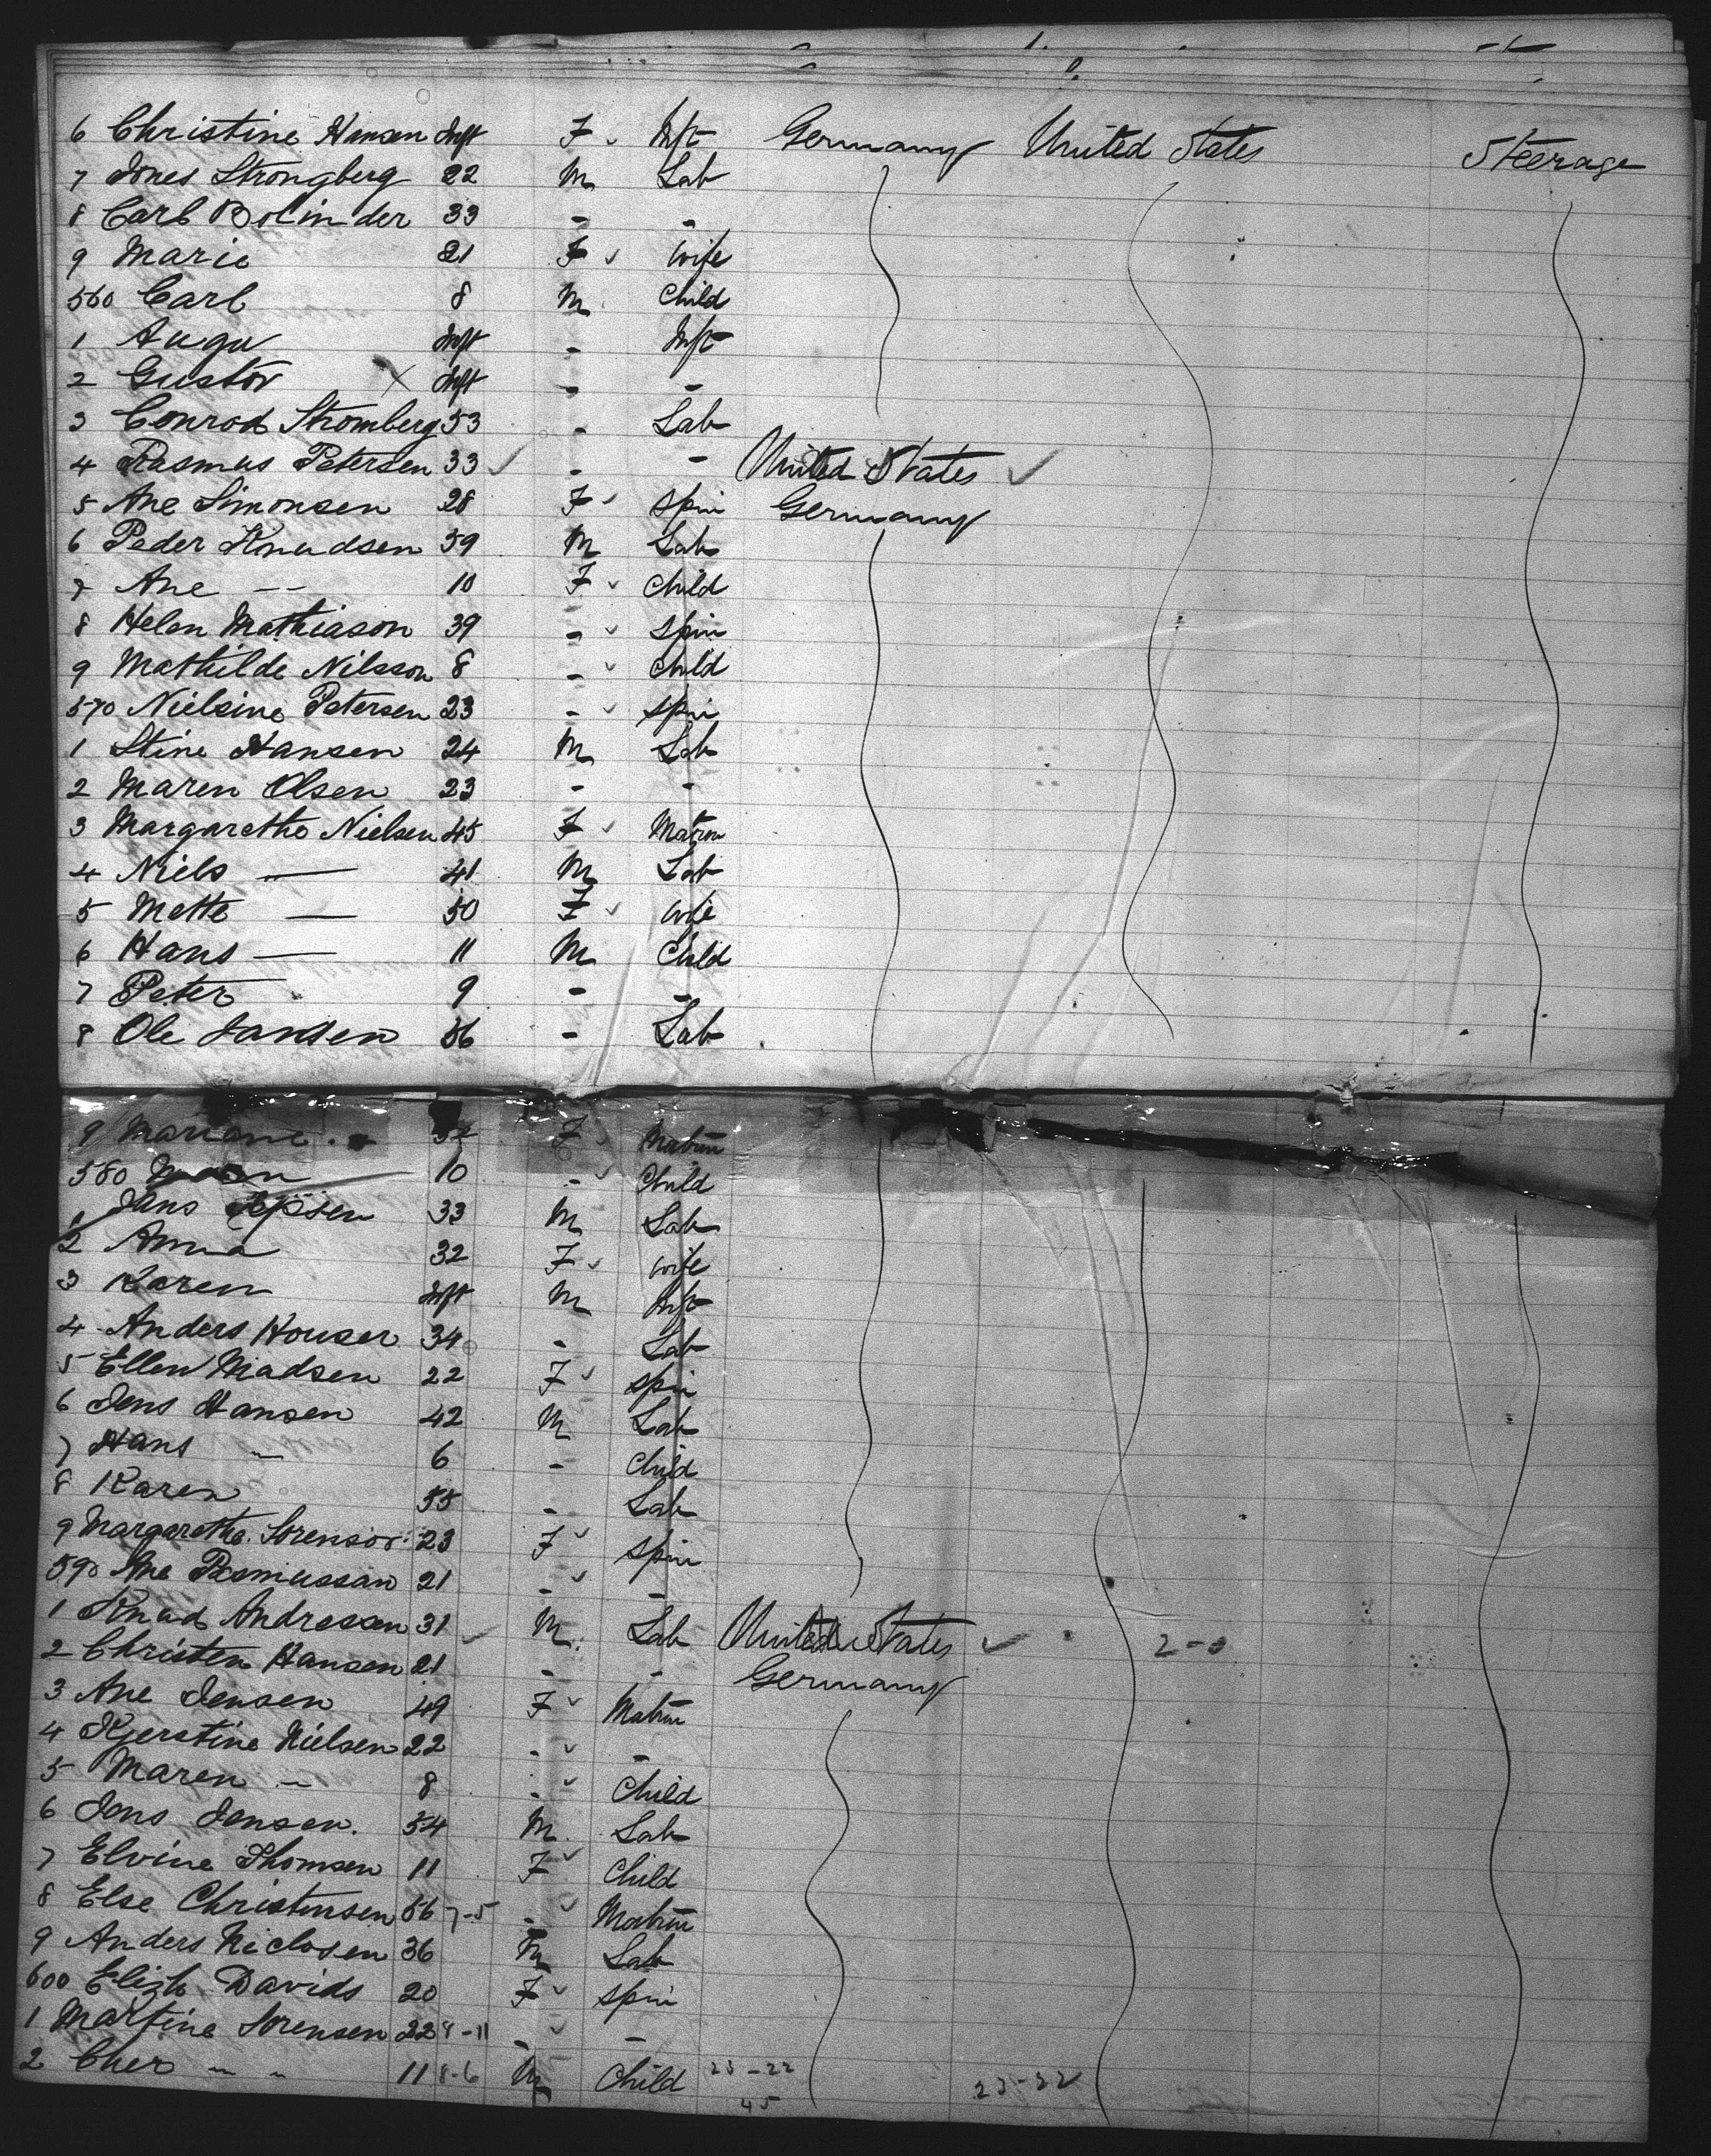 6 Christine Hansen Inft F Inft Germany United States Steerage
7 Jones Strongberg 22 M Lab
8 Carl Bolinder 33 - -
9 Marie 21 F wife
560 Carl 8 M Child
1 Augu Inft - Inft
2 Gustov Inft - -
3 Conrad Stromberg 53 - Lab
4 Rasmus Petersen 33 - - United States
5 Ane Simonsen 28 F Spin Germany
6 Peder Knudsen 59 M Lab
7 Ane -- 10 F Child
8 Helen Mathiason 39 - Spin
9 Mathilde Nilsson 8 - Child
570 Nielsine Petersen 23 - Spin
1 Stine Hansen 24 M Lab
2 Maren Olsen 23 - -
3 Margarethe Nielsen 45 F Matron
4 Niels — 41 M Lab
5 Mette — 50 F wife
6 Hans — 11 M Child
7 Peter 9 - -
8 Ole Jansen 36 - Lab
9 Mariane F Matron
580 10 - Child
1 Jans Jepsen 33 M Lab
2 Anna 32 F wife
3 Karen Inft M Inft
4 Anders Houser 34 - Lab
5 Ellen Madsen 22 F Spin
6 Jens Hansen 42 M Lab
7 Hans - 6 - Child
8 Karen 55 - Lab
9 Margarethe Sorensor 23 F Spin
590 Ane Rasmussan 21 - -
1 Knud Andresen 31 M Lab United States 2-0
2 Christen Hansen 21 - - Germany
3 Ane Jensen 49 F Matron
4 Kjerstine Nielsen 22 - -
5 Maren - 8 - Child
6 Jens Jensen. 54 M Lab
7 Elvine Thomsen 11 F Child
8 Else Christensen 56 7-5 - Matron
9 Anders Niclosen 36 M Lab
600 Elizh Davids 20 F Spin
1 Martine Sorensen 22 8-11 - -
2 11 8-6 M Child 23-22 23-22
45